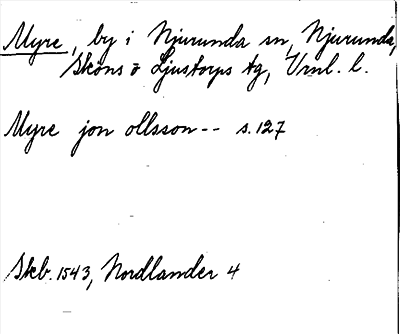 Myre, by i Njurunda sn, Njurunda,
Sköns o Ljustorps tg, Vrnl. l.
Myre jon ollsson-- s. 127
Skb. 1543, Nordlander 4